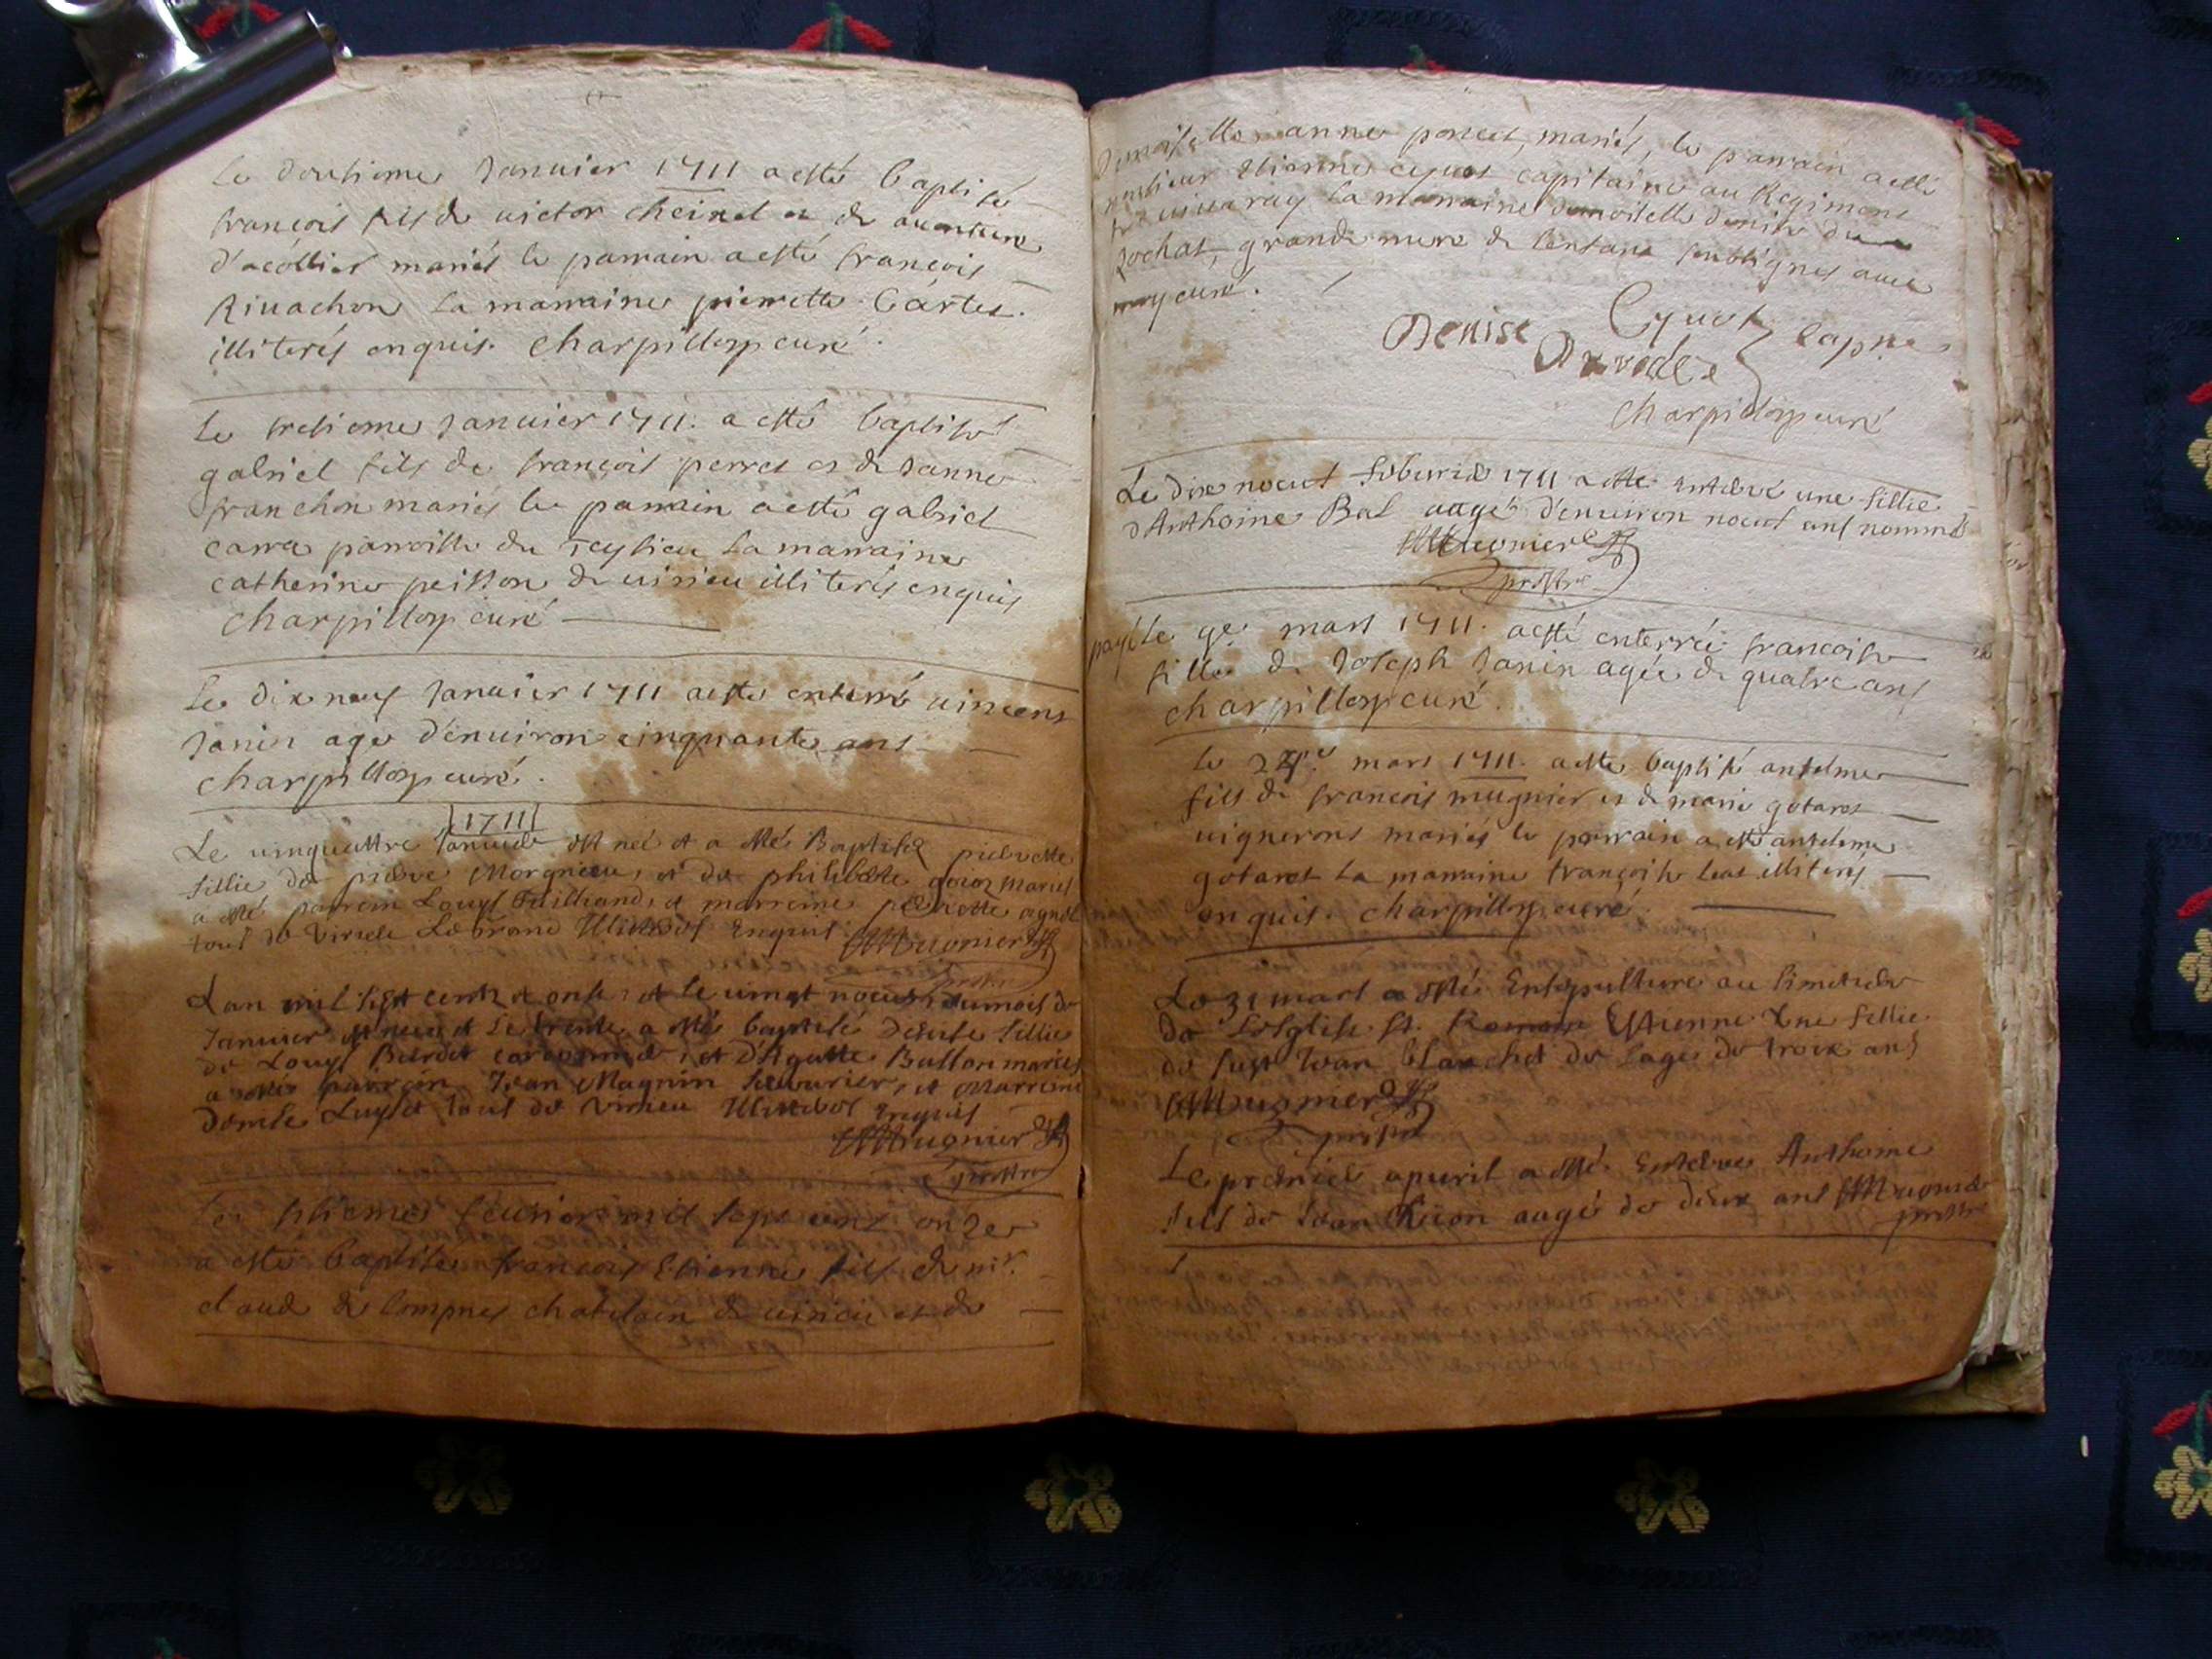 Le doutieme Januier 1711 a esté baptisé
françois fils de uictor cheinel et de auanture
d'acollier mariés le parrain a esté françois
Riuachon la marraine pierrette bartet.
illiterés enquis. charpillon curé.
Le tresieme Januier 1711. a esté baptisé
gabriel fils de françois perret et de Janne
franchon mariés le parrain a esté gabriel
carra parroisse du la marraine
catherine peisson de uirieu illiterés enquis
charpillon curé
Le dix neuf Januier 1711 a esté enterré uincens
Janin agé d'enuiron cinquante ans
charpillon curé.
1711
Le uinquattre Januier est né et a esté Baptisée pierrette
fillie de pierre Morgnieu, et de philiberte goion mariés
a esté parrein Louys et marreine pernette
tous de Virieu Le Grand Enquis Mugnier
prestre
Lan mil sept cents et onse, et le uingt noeuf du mois de
Januier est neé et le trente a esté baptisée Denise fillie
de Louys Burdet et D'Agatte Ballon mariés
a esté parrein Jean Magnin et Marreine
Luyset tous de Virieu Enquis
Mugnier
prestre
Le feurier mil sept cent onze
a esté baptisé françois Etienne fils de mr.
claude de lompnes chatelain de uirieu et de
demoiselle anne poncet, mariés, le parrain a esté
monsieur etienne cyuot capitaine au Regiment
de uiuaray la marraine demoiselle denise du
rochat, grande mere de lenfant soubsignés auec
moy curé.
Cyuot capne
Denise
charpillon curé
Le dix noeuf feburier 1711 a esté enterré une fillie
d'Anthoine Bal augé d'enuiron noeuf ans nommé
Mugnier
prestre
payé le 9e. mars 1711. a esté enterrée francoise
fille de Joseph Janin agée de quatre ans
charpillon curé.
le mars 1711. a esté baptisé anselme
fils de francois mugnier et de marie gotaret
uignerons mariés le parrain a esté anselme
gotaret la marraine françoise illiterés
enquis. charpillon curé.
Le 31 mars a esté Ensepulture au simetiere
de Lesglise St. Romain Estienne Une fillie
de fust Jean blanchet de lage de trois ans
Mugnier
prestre
Le premier apuril a esté Enterré Anthoine
fils de Jean augé de deux ans Mugnier
prestre